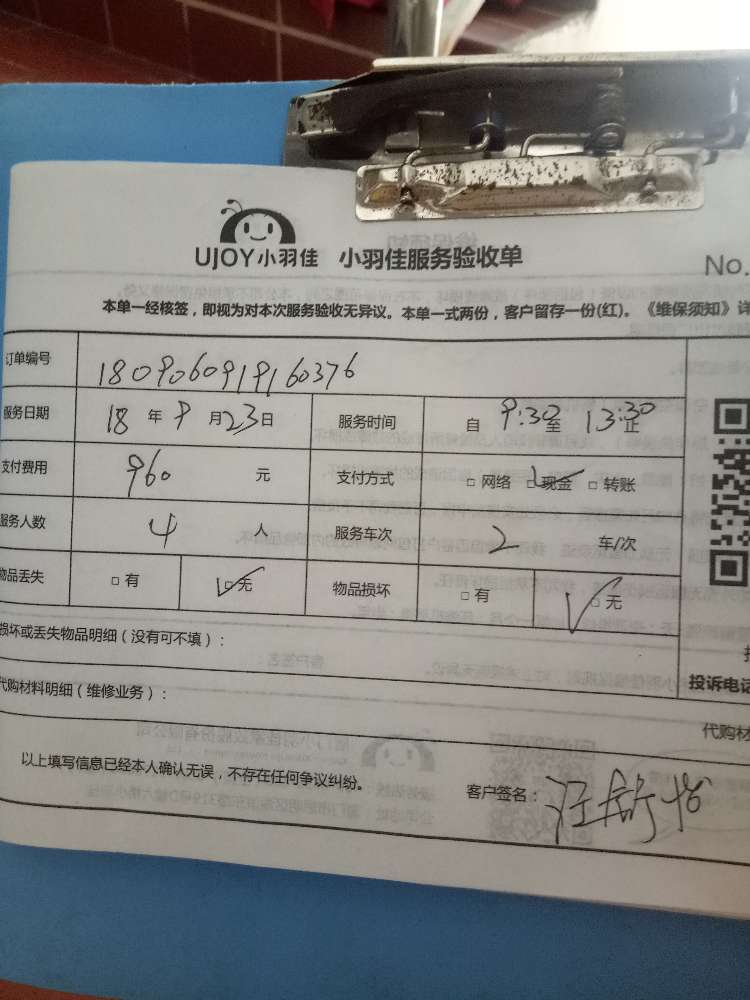 UJOY小羽佳 小羽佳服务验收单
No.
本单一经核签，即视为对本次服务验收无异议。本单一式两份，客户留存一份(红)。《维保须知》详
订单编号 1809060919160376
服务日期 18 年 9 月 23 日 服务时间 自 9:30 至 13:30 止
支付费用 960 元 支付方式 □ 网络 □ 现金 □ 转账
服务人数 4 人 服务车次 2 车/次
物品丢失 □ 有 □ 无 物品损坏 □ 有 □ 无
损坏或丢失物品明细（没有可不填）：
投诉电话
代购材料明细（维修业务）：
代购材
以上填写信息已经本人确认无误，不存在任何争议纠纷。 客户签名：汪